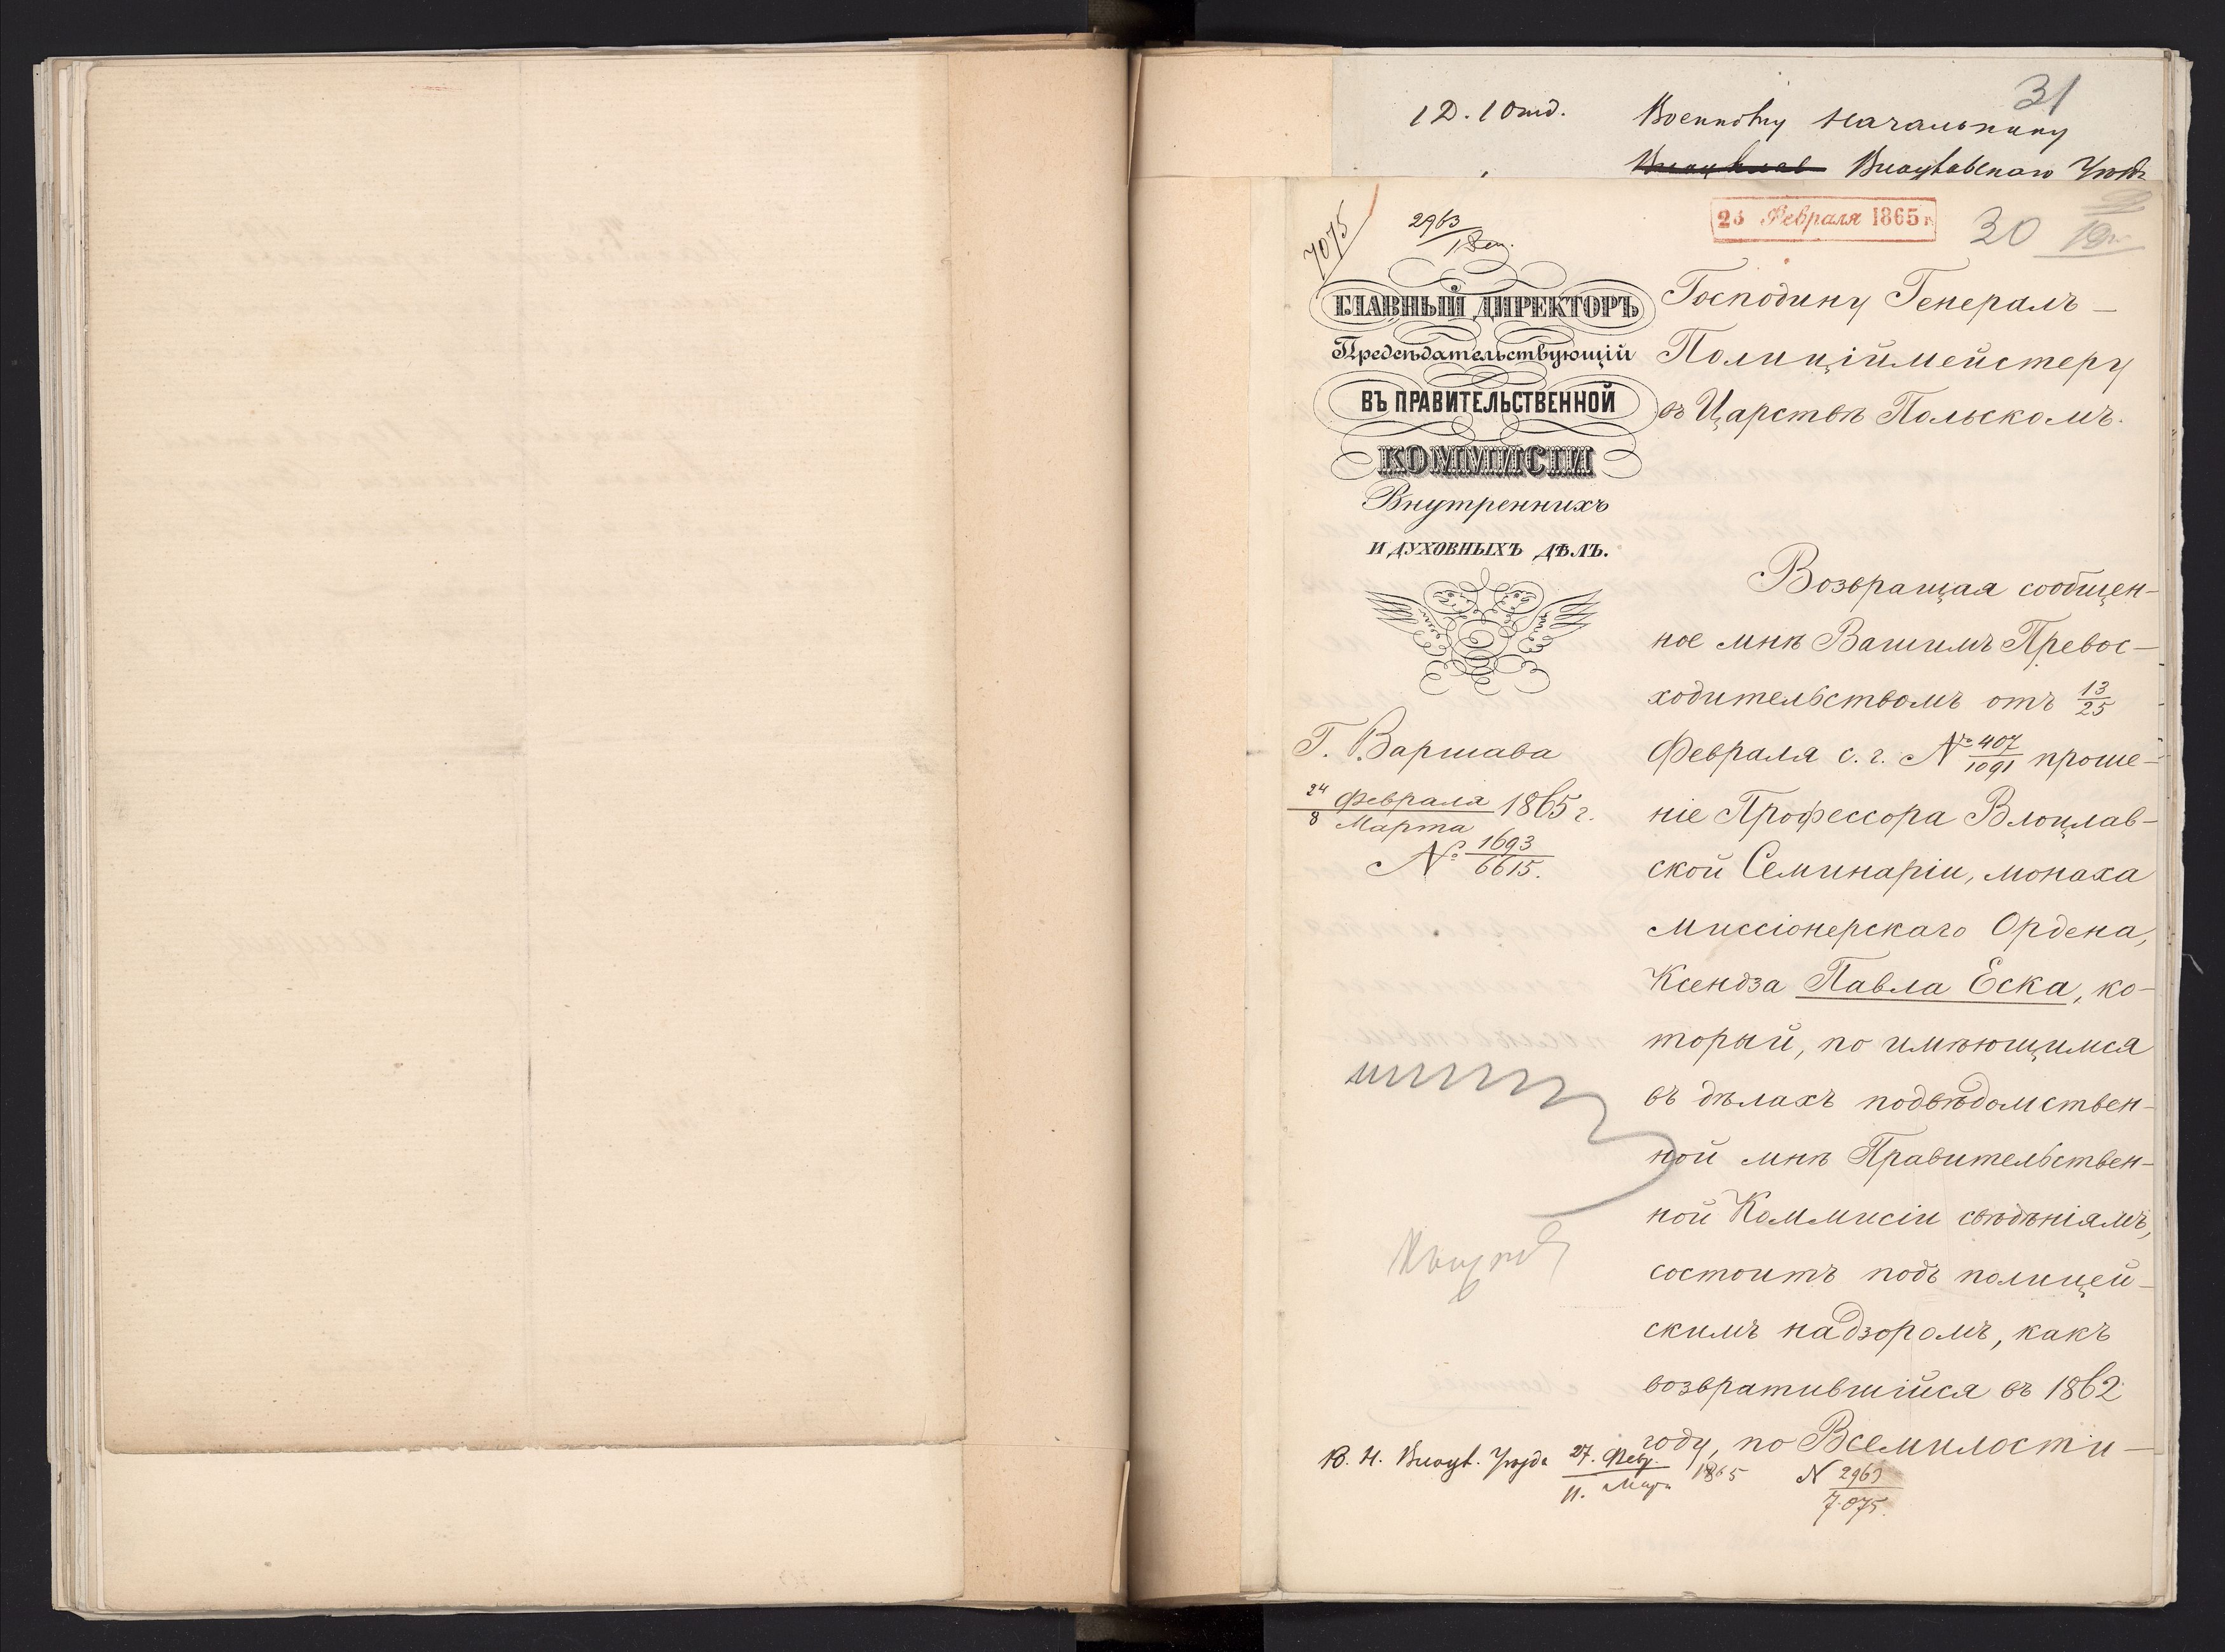 31
1 Д. 1 Отд.
Военному Начальнику
Влоцлавскаго Уѣзда
7075
2963
23 Февраля 1865 г.
30
ГЛАВНЫЙ ДИРЕКТОРЪ
Предсѣдательствующій
ВЪ ПРАВИТЕЛЬСТВЕННОЙ
КОММИСІИ
Внутреннихъ
И ДУХОВНЫХЪ ДѢЛЪ.
Г. Варшава
24 Февраля
8 Марта 1865 г.
№ 1693
6615.
Господину Генералъ-
Полиціймейстеру
въ Царствѣ Польскомъ.
Возвращая сообщен-
ное мнѣ Вашимъ Превос-
ходительствомъ отъ 13/25
Февраля с. г. № 407/1091 проше-
ніе Профессора Влоцлав-
ской Семинаріи, монаха
Миссіонерскаго Ордена,
Ксендза Павла Еска, ко-
торый, по имѣющимся
въ дѣлахъ подвѣдомствен-
ной мнѣ Правительствен-
ной Коммисіи свѣдѣніямъ,
состоитъ подъ полицей-
скимъ надзоромъ, какъ
возвратившійся въ 1862
году, по Всемилости-
В. Н. Влоцл. Уѣзда 27. Февр. 1865 № 2963
11. Мар. 7.075.